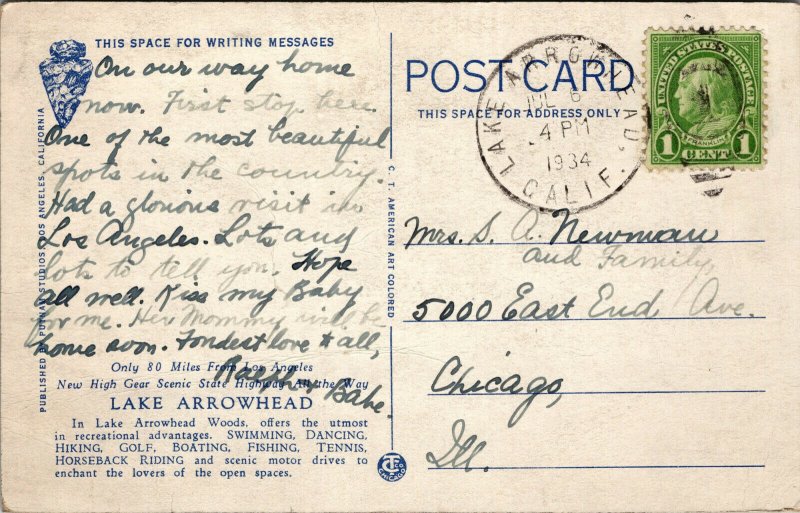 THIS SPACE FOR WRITING MESSAGES
On our way home
now. First stop here.
One of the most beautiful
spots in the country.
Had a glorious visit in
Los Angeles. Lots and
lots to tell you. Hope
all well. Kiss my Baby
for me. Her Mommy will be
home soon. Fondest love to all,
Babe.
Only 80 Miles From Los Angeles
New High Gear Scenic State Highway All the Way
LAKE ARROWHEAD
In Lake Arrowhead Woods, offers the utmost
in recreational advantages. SWIMMING, DANCING,
HIKING, GOLF, BOATING, FISHING, TENNIS,
HORSEBACK RIDING and scenic motor drives to
enchant the lovers of the open spaces.
PUBLISHED BY STUDIOS LOS ANGELES, CALIFORNIA
C. T. AMERICAN ART COLORED
CT
CHICAGO
POST CARD
THIS SPACE FOR ADDRESS ONLY
LAKE ARROWHEAD,
JUL 6
4 PM
1934
CALIF.
UNITED STATES POSTAGE
FRANKLIN
1 CENT 1
Mrs. S. A. Newman
and Family,
5000 East End Ave.
Chicago,
Ill.